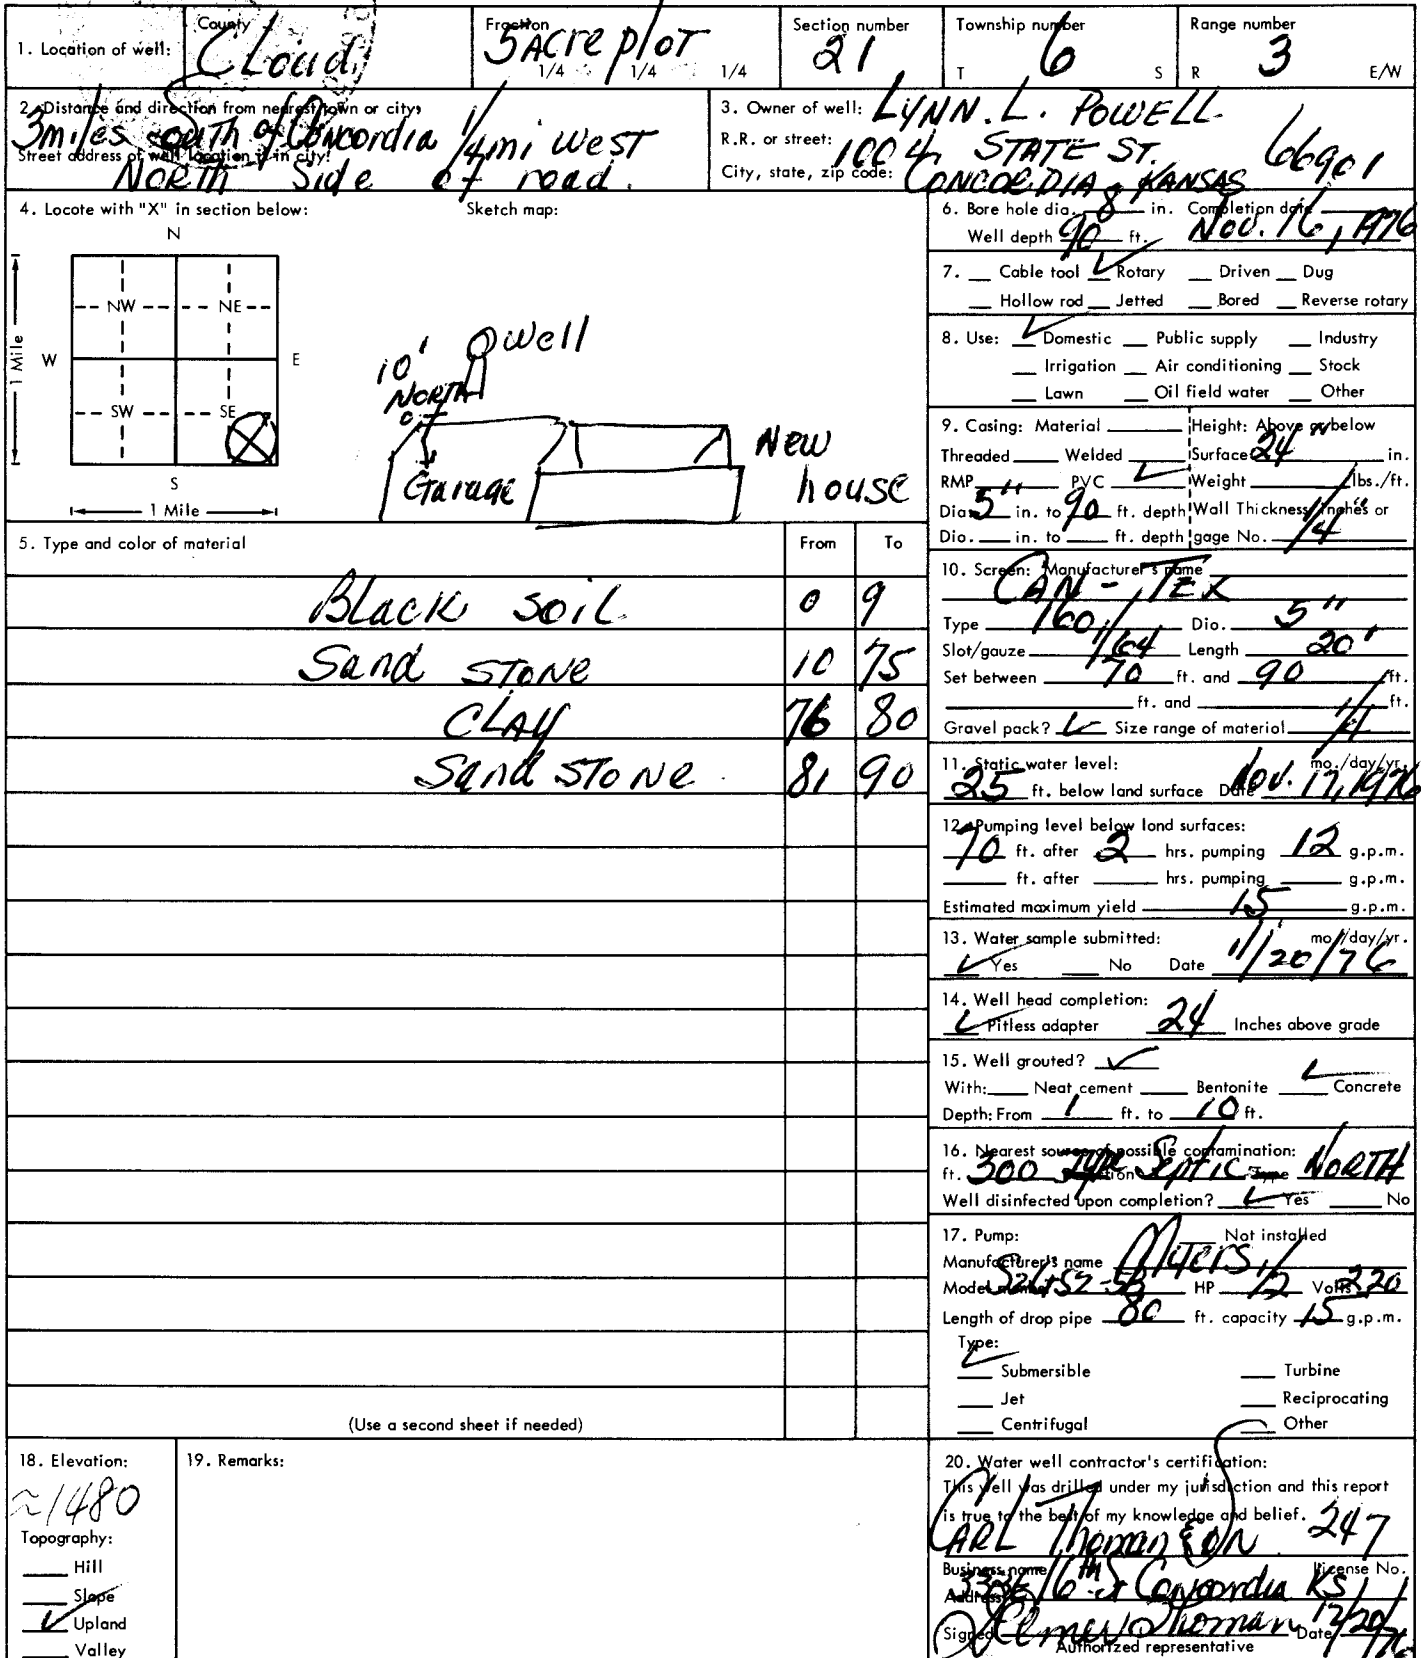 1. Location of well:
County
Cloud
Fraction
5 Acre plot
1/4 1/4 1/4
Section number
21
Township number
T 6 S
Range number
R 3 E/W
2. Distance and direction from nearest town or city:
3 miles South of Concordia 1/4 mi west
Street address of well location if in city:
North Side of road.
3. Owner of well: LYNN. L. POWELL
R.R. or street: 1004 STATE ST.
City, state, zip code: CONCORDIA, KANSAS 66901
4. Locate with "X" in section below:
Sketch map:
N
NW NE
W E
SW SE
S
1 Mile
1 Mile
10' North of
Well
Garage
New house
5. Type and color of material From To
Black soil 0 9
Sand stone 10 75
CLAY 76 80
Sand stone 81 90
(Use a second sheet if needed)
6. Bore hole dia. 8 in. Completion date
Well depth 90 ft. Nov. 16, 1976
7. Cable tool ✓ Rotary Driven Dug
Hollow rod Jetted Bored Reverse rotary
8. Use: ✓ Domestic Public supply Industry
Irrigation Air conditioning Stock
Lawn Oil field water Other
9. Casing: Material Height: Above or below
Threaded Welded Surface 24" in.
RMP PVC ✓ Weight lbs./ft.
Dia. 5" in. to 90 ft. depth Wall Thickness inches or
Dia. in. to ft. depth gage No. 1/4"
10. Screen: Manufacturer's name
CAN-TEX
Type 160 Dia. 5"
Slot/gauze 1/64 Length 20'
Set between 70 ft. and 90 ft.
ft. and ft.
Gravel pack? ✓ Size range of material 1/4
11. Static water level: mo./day/yr.
25 ft. below land surface Date Nov. 17, 1976
12. Pumping level below land surfaces:
70 ft. after 2 hrs. pumping 12 g.p.m.
ft. after hrs. pumping g.p.m.
Estimated maximum yield 15 g.p.m.
13. Water sample submitted: mo/day/yr.
✓ Yes No Date 11/20/76
14. Well head completion:
✓ Pitless adapter 24 Inches above grade
15. Well grouted? ✓
With: Neat cement Bentonite ✓ Concrete
Depth: From 1 ft. to 10 ft.
16. Nearest source of possible contamination:
ft. 300 Type Septic Type North
Well disinfected upon completion? ✓ Yes No
17. Pump: Not installed
Manufacturer's name Myers
Model number HP 1/2 Volts 220
Length of drop pipe 80 ft. capacity 15 g.p.m.
Type:
✓ Submersible Turbine
Jet Reciprocating
Centrifugal Other
18. Elevation:
≈1480
Topography:
Hill
Slope
✓ Upland
Valley
19. Remarks:
20. Water well contractor's certification:
This well was drilled under my jurisdiction and this report
is true to the best of my knowledge and belief.
CARL Thoman & SON 247
Business name License No.
Address 16th St Concordia KS
Signed Elmer Thoman Date 12/20/76
Authorized representative